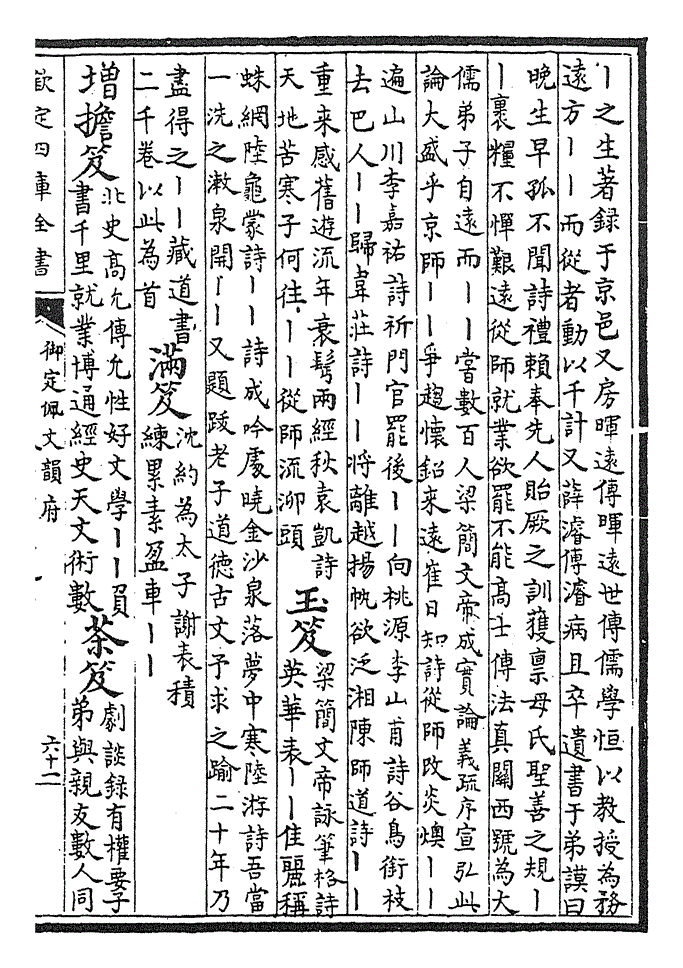 丨之生著録于京邑又房暉遠傳暉遠世傳儒學恒以教授為務
遠方丨丨而從者動以千計又薛濬傳濬病且卒遺書于弟謨曰
晚生早孤不聞詩禮賴奉先人貽厥之訓獲禀母氏聖善之規丨
丨裹糧不憚艱遠從師就業欲罷不能高士傳法真關西號為大
儒弟子自遠而丨丨嘗數百人梁簡文帝成實論義疏序宣弘此
論大盛乎京師丨丨爭趨懷鉛来遠崔日知詩從師改炎燠丨丨
遍山川李嘉祐詩祈門官罷後丨丨向桃源李山甫詩谷鳥銜枝
去巴人丨丨歸韋莊詩丨丨將離越揚帆欲泛湘陳師道詩丨丨
重来感舊遊流年衰鬢兩經秋袁凱詩
天地苦寒子何往丨丨從師流泖頭
玉笈
梁簡文帝詠筆格詩
英華表丨丨佳麗稱
蛛網陸龜蒙詩丨丨詩成吟處曉金沙泉落夢中寒陸游詩吾當
一洗之漱泉開丨丨又題跋老子道德古文予求之踰二十年乃
盡得之丨丨藏道書
二千卷以此為首
滿笈
沈約為太子謝表積
練累素盈車丨丨
增擔笈
北史高允傳允性好文學丨丨負
書千里就業博通經史天文術數
茶笈
劇談録有權要子
弟與親友數人同
欽定四庫全書
御定佩文韻府
六十二